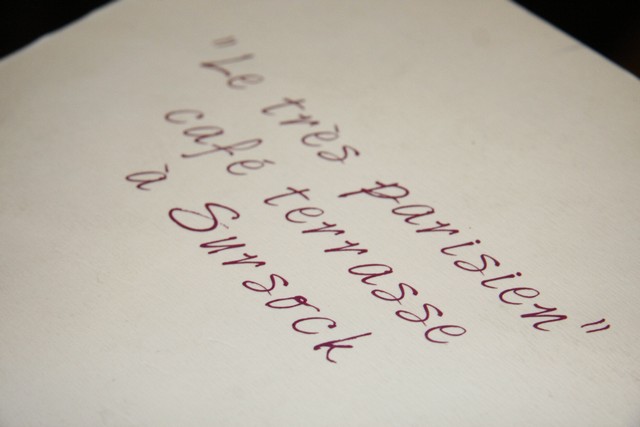 "Le très parisien"
café terrasse
à Sursock